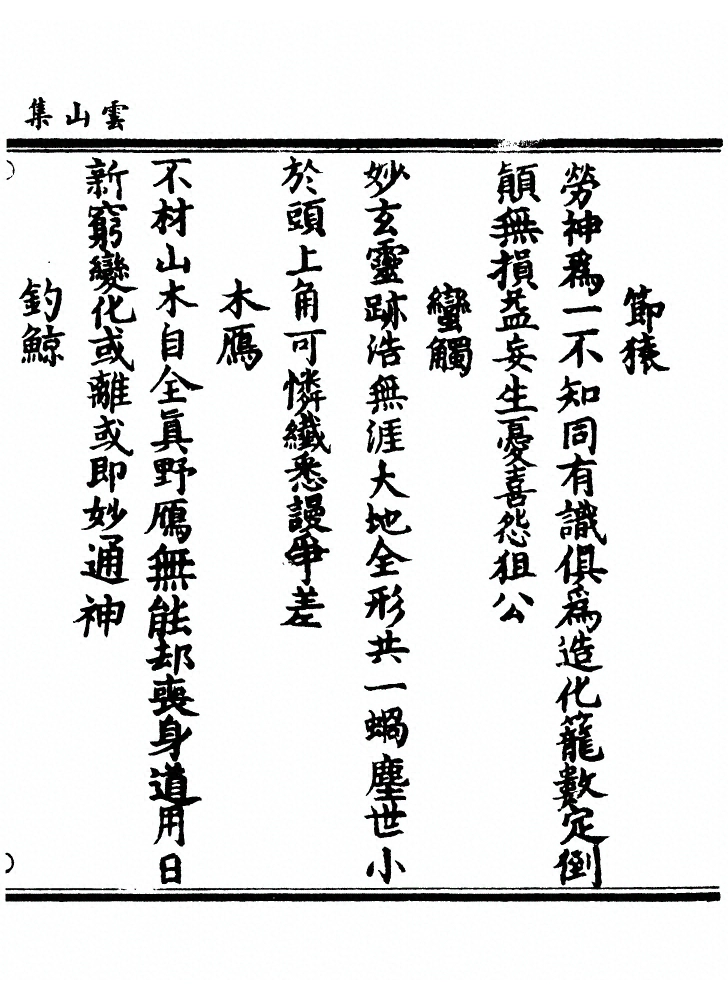 雲山集
節猿
勞神爲一不知同有識俱爲造化籠數定倒
顛無損益妄生憂喜怨狙公
蠻觸
妙玄靈跡浩無涯大地全形共一蝸塵世小
於頭上角可憐纖悉謾爭差
木鴈
不材山木自全眞野鴈無能却喪身道用日
新窮變化或離或即妙通神
釣鯨